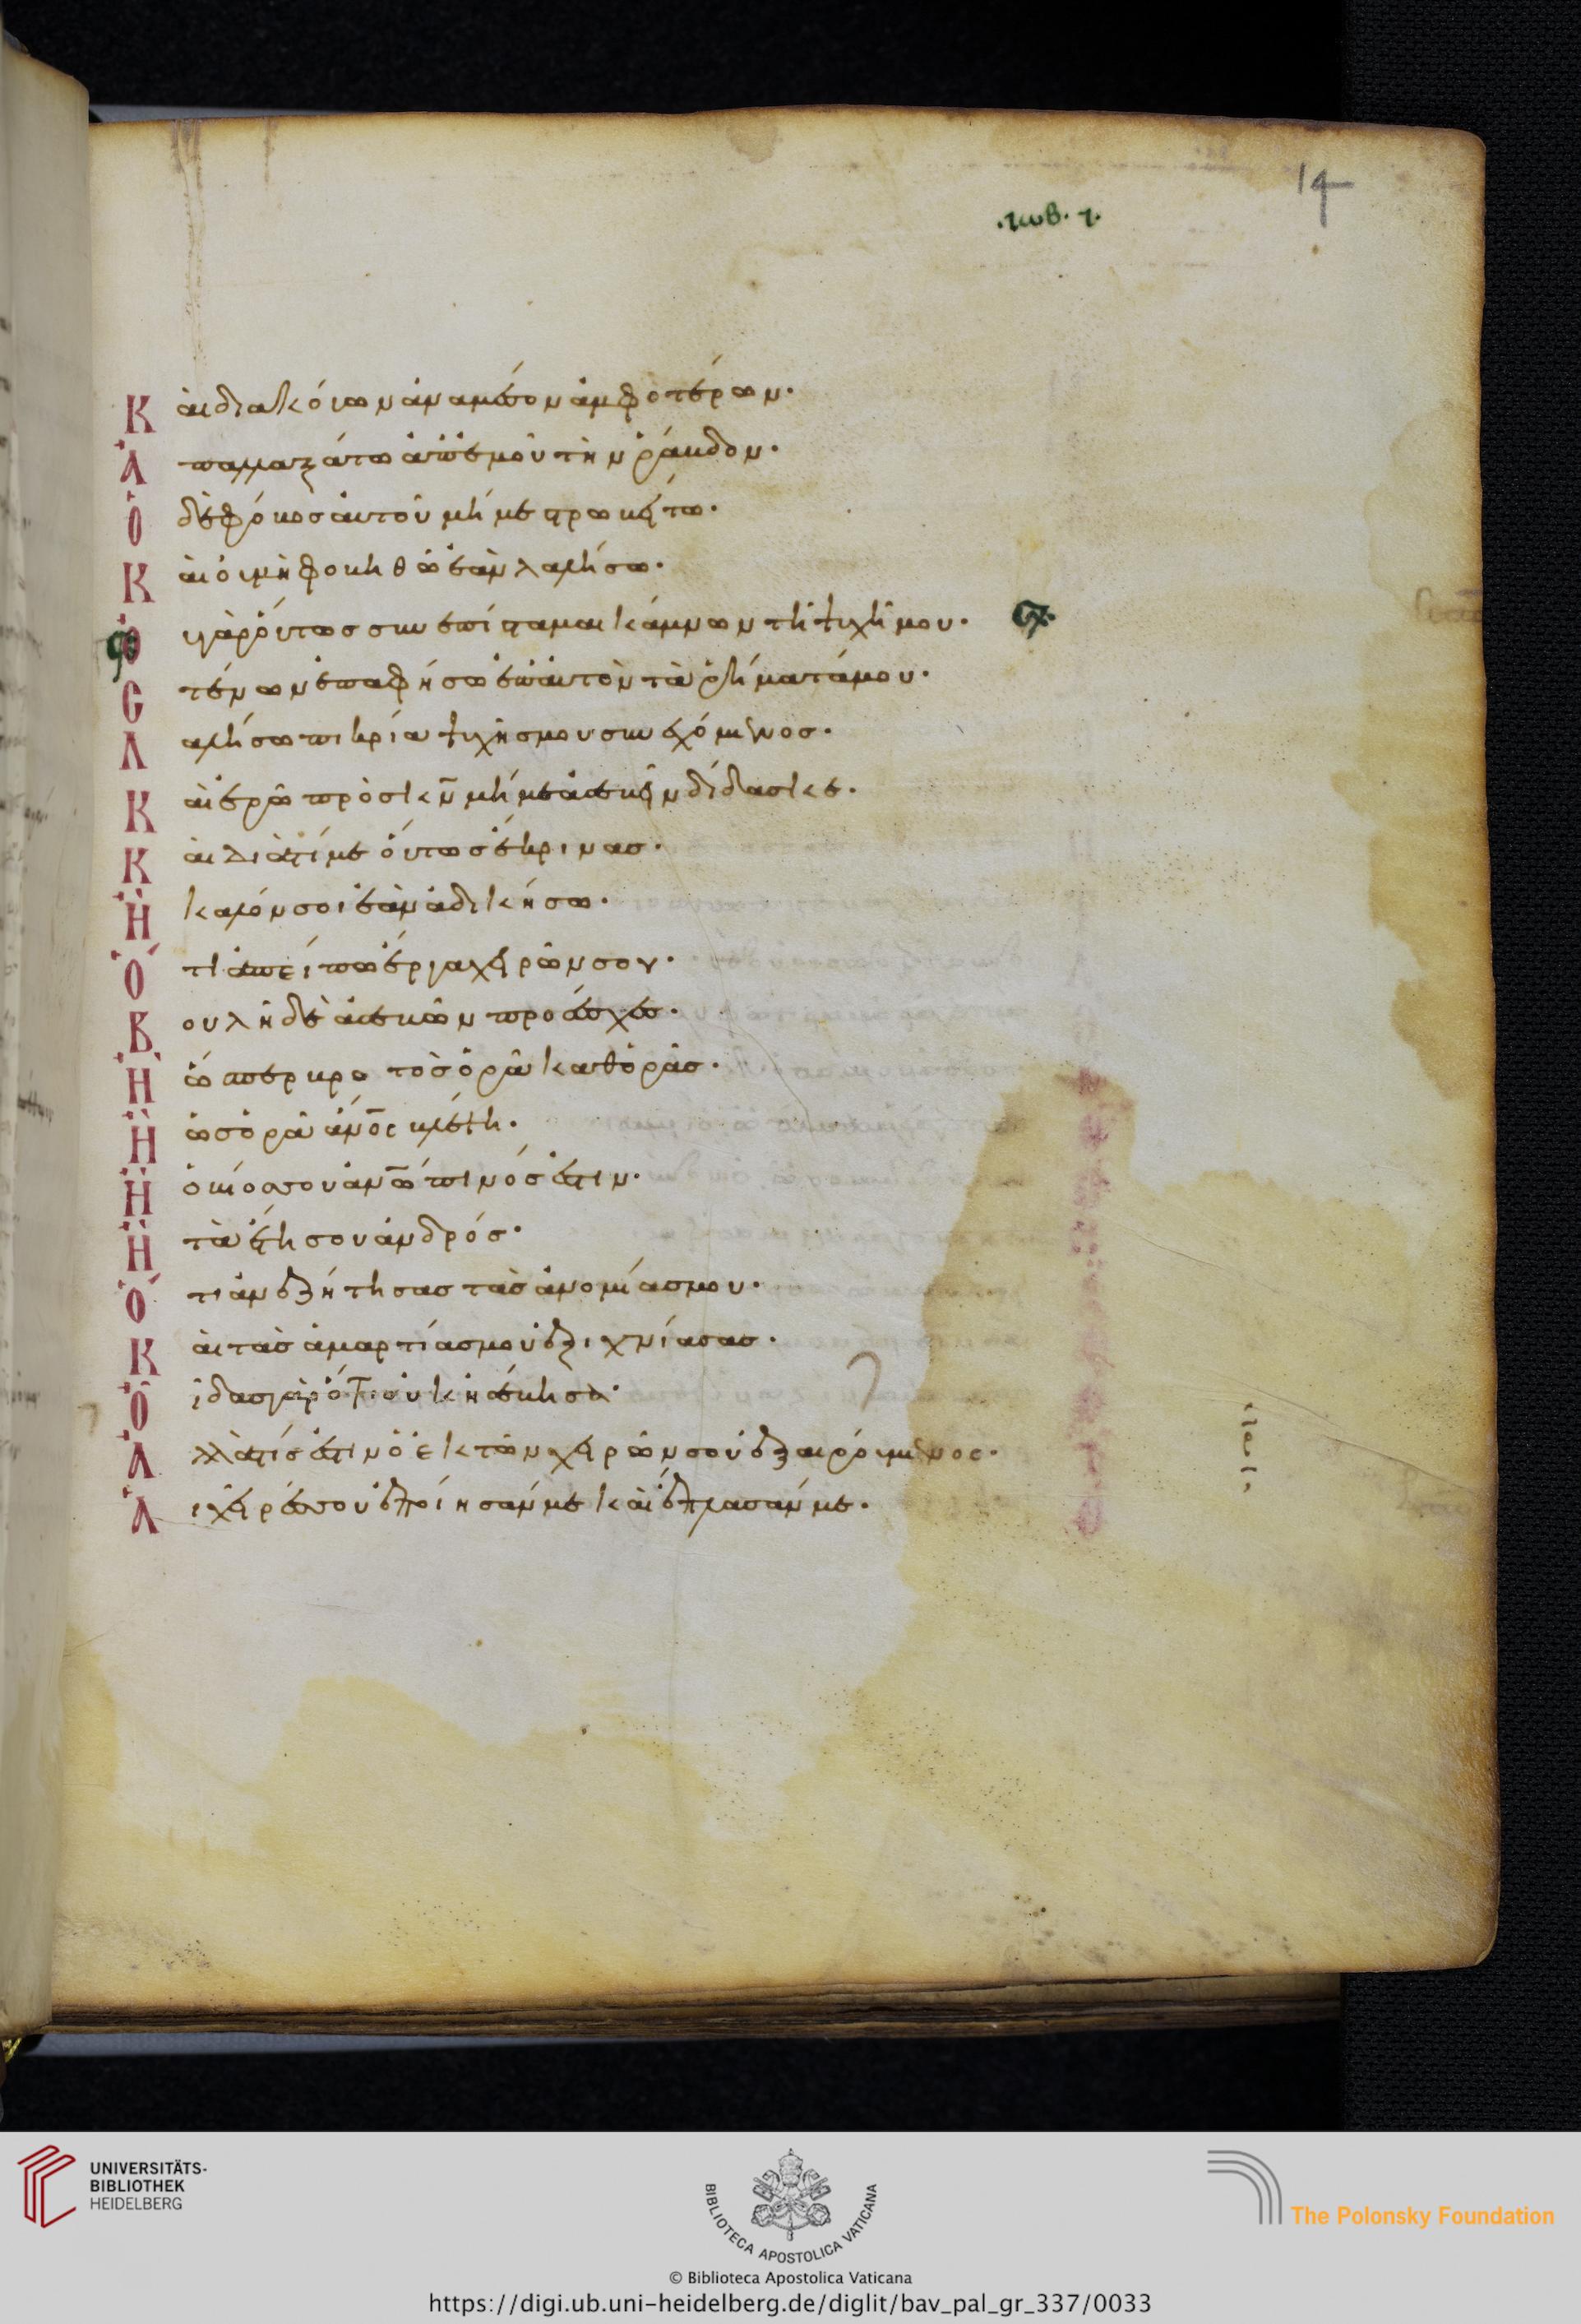 14
·ιωβ· ι·
Καὶ διακούων ἀναμέσον ἀμφοτέρων·
Ἀπαλλαξάτω ἀπ' ἐμοῦ τὴν ῥάβδον·
Ὁ δὲ φόβος αὐτοῦ μή με στροβείτω·
Καὶ οὐ μὴ φοβηθῶ ἐὰν λαλήσω·
Οὐ γὰρ οὕτως συνεπίσταμαι κάμνων τῇ ψυχῇ μου·
Στένων ἐπαφήσω ἐπ' αὐτὸν τὰ ῥήματά μου·
Λαλήσω πικρία ψυχῆς μου συνεχόμενος·
Καὶ ἐρῶ πρὸς κν μή με ἀσεβεῖν δίδασκε·
Καὶ διατί με οὕτως ἔκρινας·
Ἢ καλόν σοι ἐὰν ἀδικήσω·
Ὅτι ἀπείπω ἔργα χειρῶν σου·
Βουλῇ δὲ ἀσεβῶν προσέσχες·
Ἢ ὥσπερ βροτὸς ὁρᾷ καθορᾷς·
Ἢ ὡς ὁρᾷ ἄνος βλέπῃ·
Ἢ ὁ βίος σου ἀνώπινός ἐστιν·
Ἢ τὰ ἔτη σου ἀνδρός·
Ὅτι ἀνεζήτησας τὰς ἀνομίας μου·
Καὶ τὰς ἁμαρτίας μου ἐξιχνίασας·
Οἶδας γὰρ ὅτι οὐκ ἠσέβησα·
Ἀλλὰ τίς ἐστιν ὁ ἐκ τῶν χειρῶν σου ἐξαιρούμενος·
Αἱ χεῖρές σου ἐποίησάν με καὶ ἔπλασάν με·
UNIVERSITÄTS-
BIBLIOTHEK
HEIDELBERG
BIBLIOTECA APOSTOLICA VATICANA
The Polonsky Foundation
© Biblioteca Apostolica Vaticana
https://digi.ub.uni-heidelberg.de/diglit/bav_pal_gr_337/0033